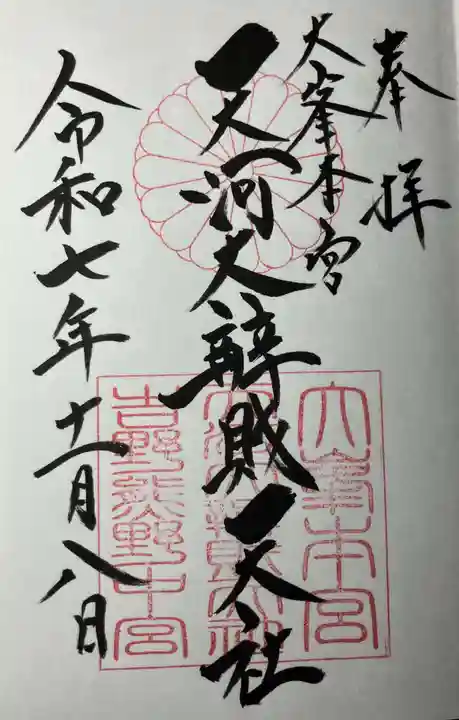 奉拝
大峯本宮
天河大辨財天社
令和七年十一月八日
大峯本宮
吉野熊野中宮